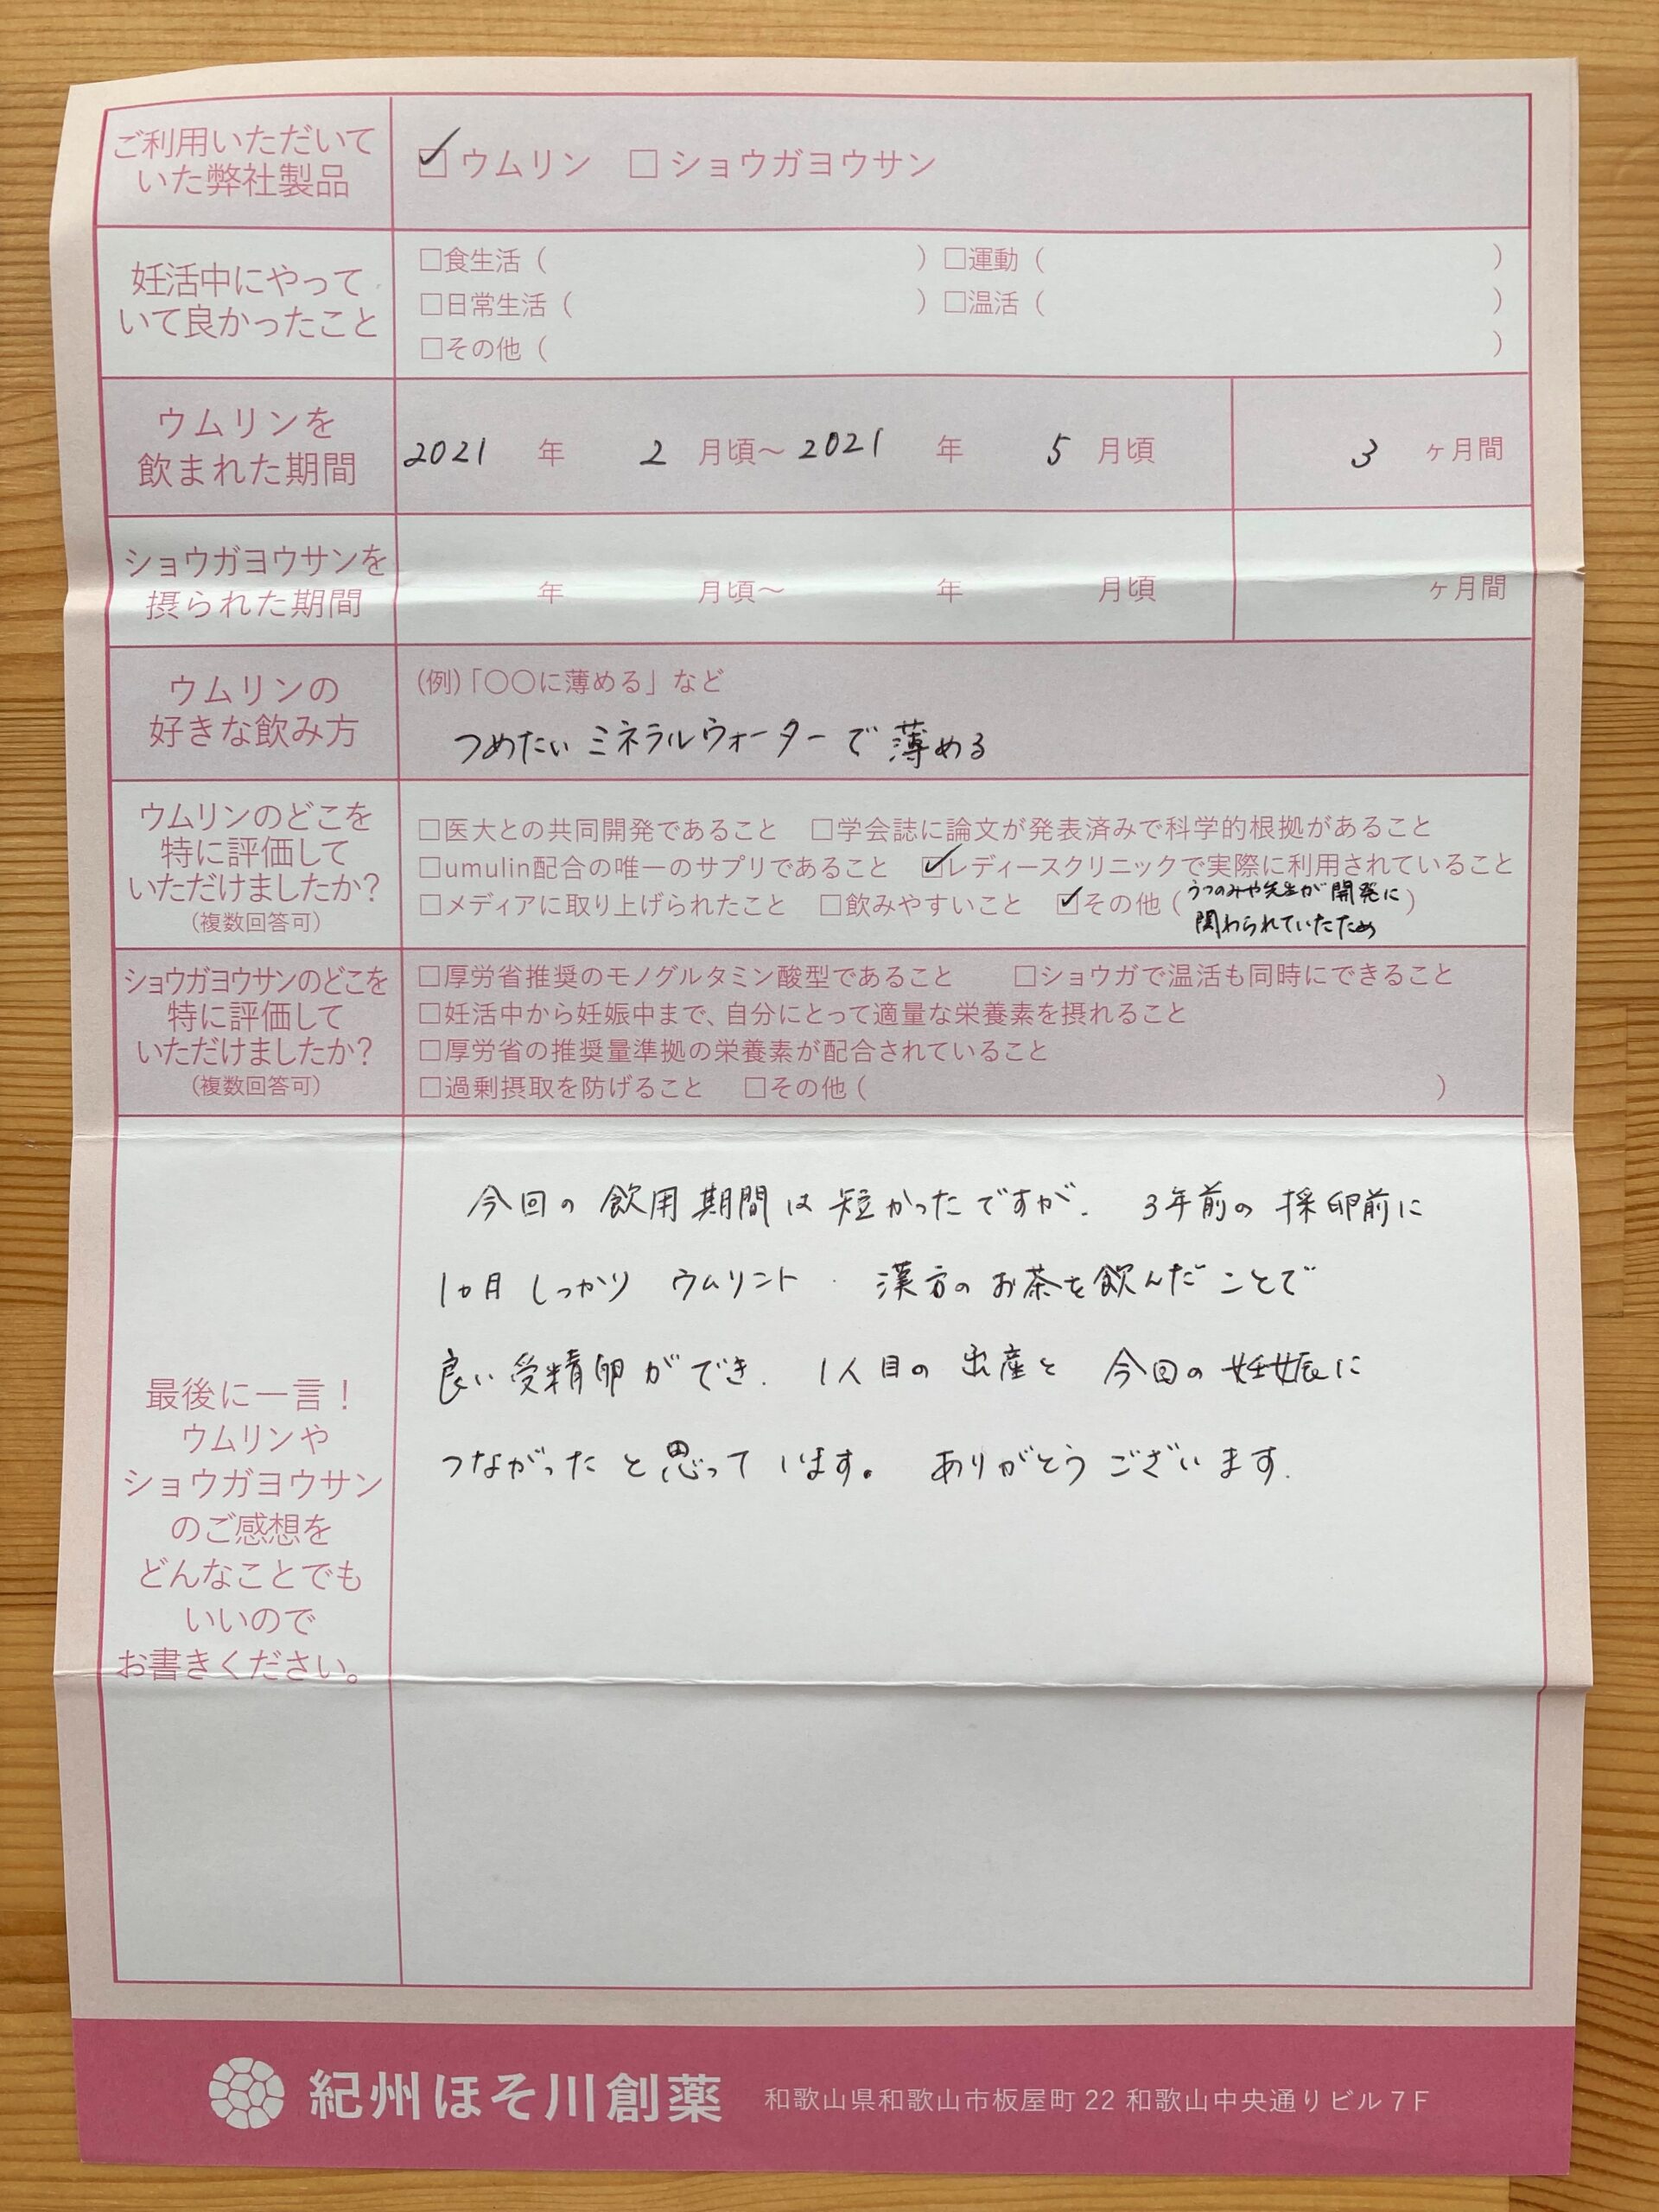 ご利用いただいて
いた弊社製品
☑ウムリン □ショウガヨウサン
妊活中にやって
いて良かったこと
□食生活( ) □運動( )
□日常生活( ) □温活( )
□その他( )
ウムリンを
飲まれた期間
2021 年 2 月頃～ 2021 年 5 月頃 3 ヶ月間
ショウガヨウサンを
摂られた期間
年 月頃～ 年 月頃 ヶ月間
ウムリンの
好きな飲み方
(例)「〇〇に薄める」など
つめたいミネラルウォーターで薄める
ウムリンのどこを
特に評価して
いただけましたか?
(複数回答可)
□医大との共同開発であること □学会誌に論文が発表済みで科学的根拠があること
□umulin配合の唯一のサプリであること ☑レディースクリニックで実際に利用されていること
□メディアに取り上げられたこと □飲みやすいこと ☑その他(うつのみや先生が開発に
関わられていたため)
ショウガヨウサンのどこを
特に評価して
いただけましたか?
(複数回答可)
□厚労省推奨のモノグルタミン酸型であること □ショウガで温活も同時にできること
□妊活中から妊娠中まで、自分にとって適量な栄養素を摂れること
□厚労省の推奨量準拠の栄養素が配合されていること
□過剰摂取を防げること □その他( )
最後に一言!
ウムリンや
ショウガヨウサン
のご感想を
どんなことでも
いいので
お書きください。
今回の飲用期間は短かったですが、3年前の採卵前に
1ヵ月しっかりウムリント・漢方のお茶を飲んだことで
良い受精卵ができ、1人目の出産と今回の妊娠に
つながったと思っています。ありがとうございます.
紀州ほそ川創薬 和歌山県和歌山市板屋町 22 和歌山中央通りビル 7F